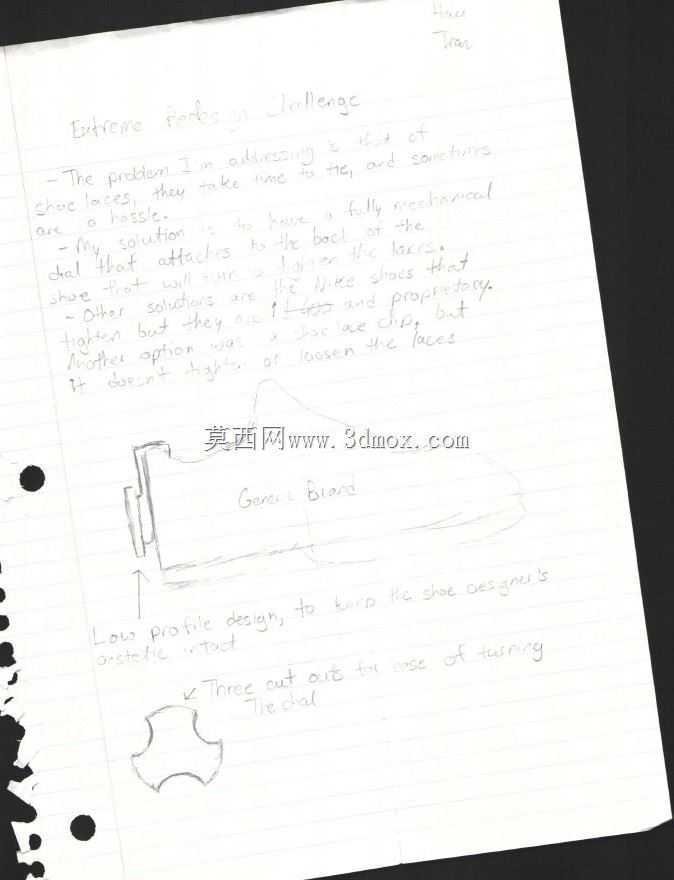 Tran
Extreme Redesign Challenge
- The problem I'm addressing is that of
shoe laces, they take time to tie, and sometimes
are a hassle.
- My solution is to have a fully mechanical
dial that attaches to the back of the
shoe that will turn & tighten the laces.
- Other solutions are the Nike shoes that
tighten but they are and proprietary.
Another option was a shoe lace clip, but
It doesn't tighten or loosen the laces
莫西网www.3dmox.com
Generic Brand
Low profile design, to keep the shoe designer's
intact
Three cut outs for ease of turning
The dial